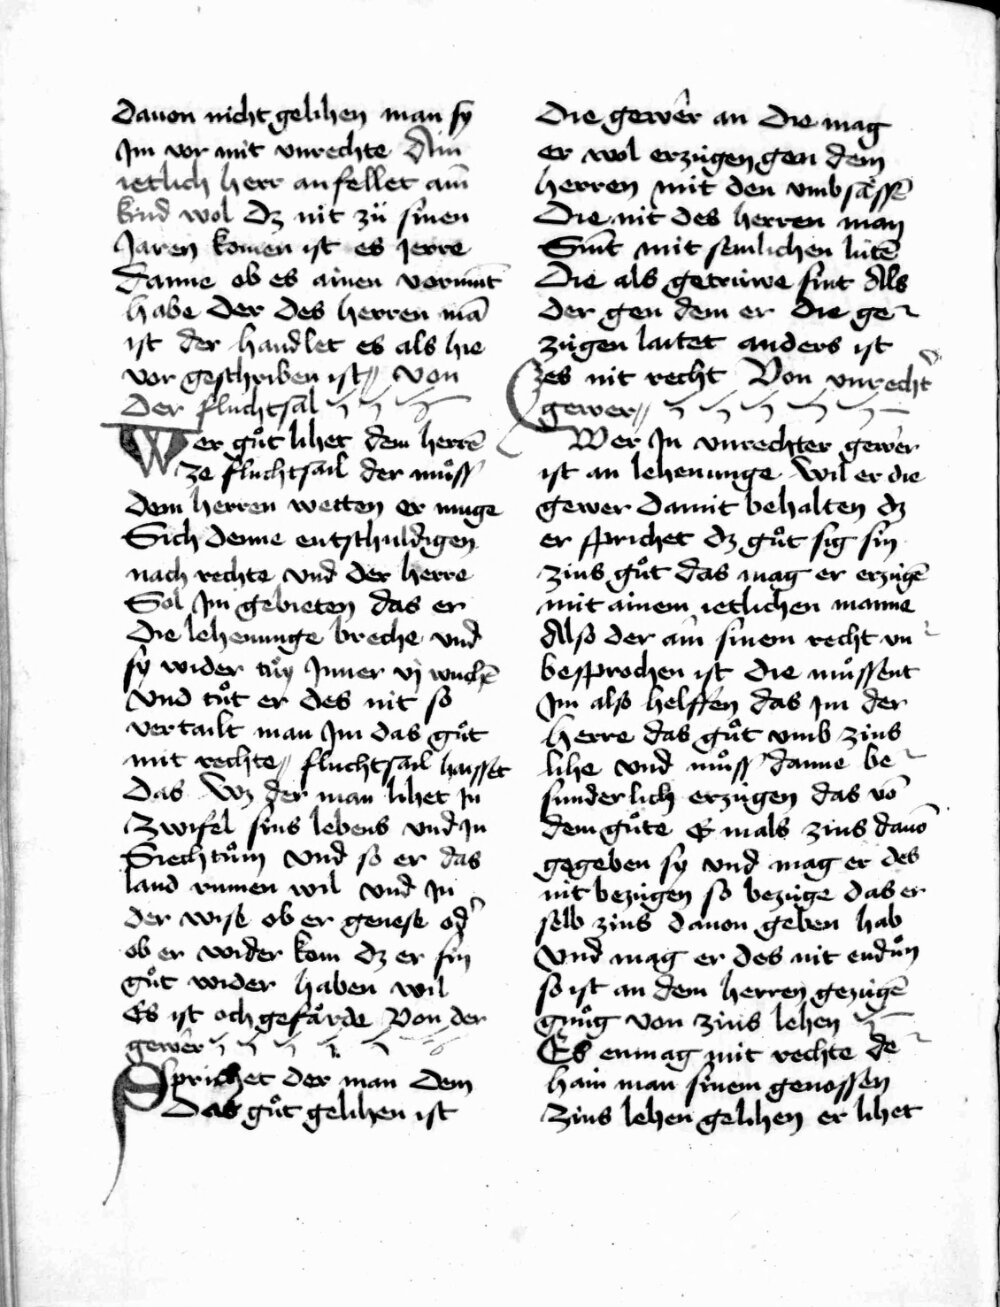 dauon nicht gelihen man sy
Im vor mit vnrechte Ain
ietlich herr an fellet ain
kind wol dz nit zů sinen
Jaren komen ist es Jerre
danne ob es ainen vormūt
habe der des herren mā
ist der handlet es als hie
vor geschriben ist〃 von
der fluchtsal
Wer gůt lihet dem herrē
ze fluchtsail der můss
dem herren wetten er muge
Sich denne entschuldigen
nach rechte vnd der herre
Sol Im gebieten das er
die lehenunge breche vnd
sy wider tůy Inner vj wuchē
vnd tůt er des nit so
vertailt man Im das gůt
mit rechte〃 fluchtsail haisset
Das Wz der man lihet In
zwifel sins lebens vnd In
Siechtům vnd so er das
land rumen wil vnd In
der wise ob er genese od'
ob er wider kom dz er sin
gůt wider haben wil
Es ist och gefärde Von der
gewer
Sprichet der man dem
Das gůt gelihen ist
die gewer an die mag
er wol erzügen gen dem
herren mit den vmbsässē
die nit des herren man
Sint mit semlichen lütē
die als getrüwe sint Als
der gen dem er die ge-
zügen laitet anders ist
es nit recht Von vnrecht'
gewer〃
Wer In vnrechter gewer
ist an lehenunge Wil er die
gewer damit behalten dz
er sprichet dz gůt sig sin
zins gůt das mag er erzügē
mit ainem ietlichen manne
Also der ain sinem recht vn-
besprochen ist die můssent
Im also helffen das Im der
herre das gůt vmb zins
lihe vnd můss danne be-
sunderlich erzügen das vō
dem gůte E mals zins dauō
gegeben sy vnd mag er des
nit bezügen so bezüge das er
selb zins dauon geben hab
vnd mag er des nit endůn
so ist an dem herren gezügē
gnůg von zins lehen
Es enmag mit rechte de-
hain man sinem genossen
zins lehen gelihen er lihet